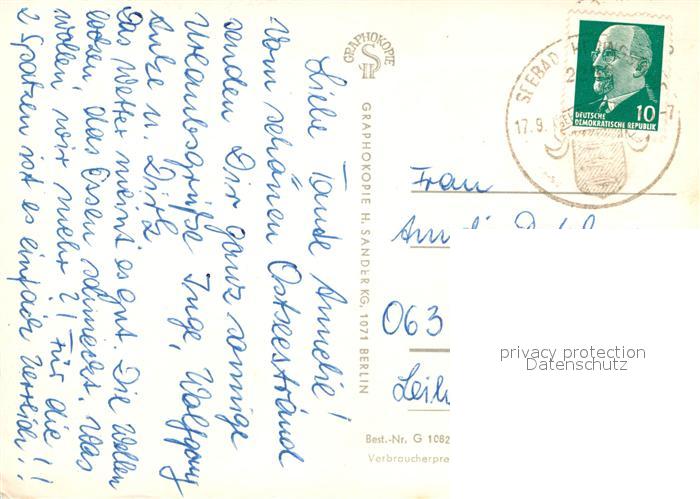 Liebe Tante Annelie!
Vom schönen Ostseestrand
senden Dir ganz sonnige
Urlaubsgrüße Inge, Wolfgang
Antze u. Dirk
Das Wetter meint es gut. Die Wellen
locken, das Essen schmeckt. Was
wollen wir mehr?! Für die
2 Spatzen ist es einfach herrlich!!
GRAPHOKOPIE
GRAPHOKOPIE H. SANDER KG, 1071 BERLIN
SEEBAD
17.9.
10
DEUTSCHE
DEMOKRATISCHE REPUBLIK
Frau
063
privacy protection
Datenschutz
Best.-Nr. G 1082
Verbraucherpre